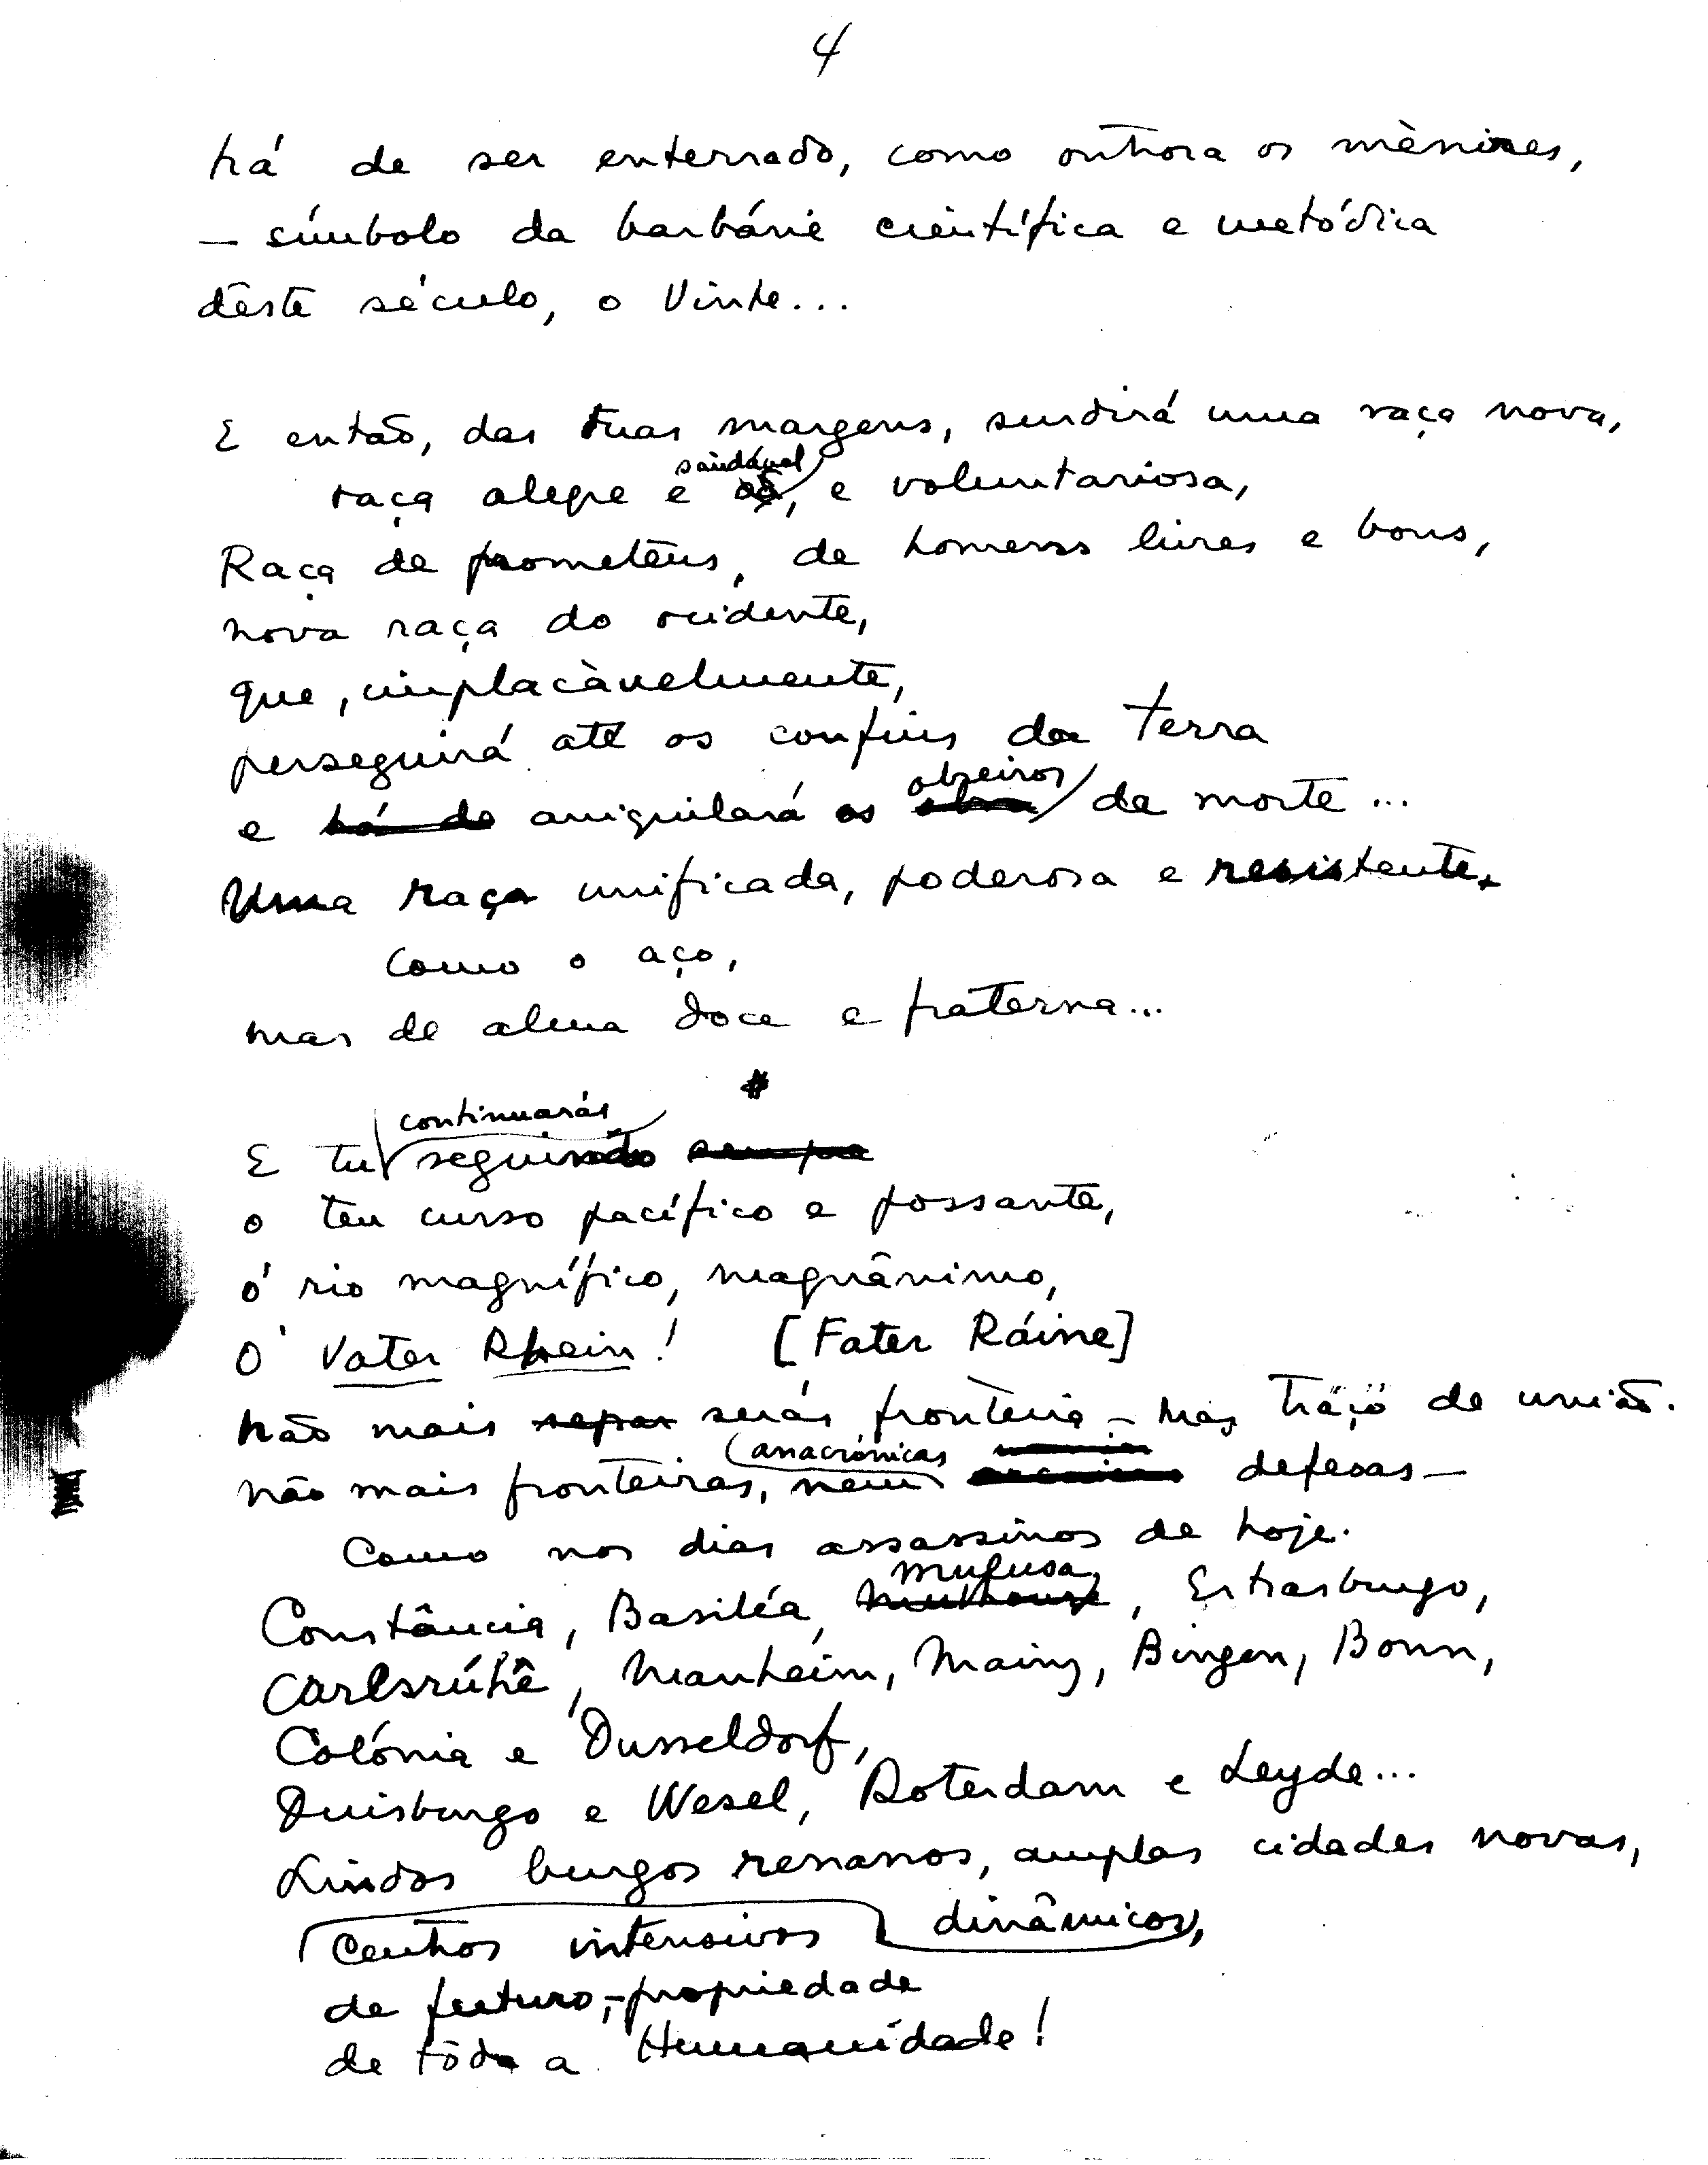 4
há de ser enterrado, como outrora os mènires,
— símbolo da barbárie científica e metódica
dêste século, o Vinte...
E então, das tuas margens, surdirá uma raça nova,
saüdável
raça alegre e sã, e voluntariosa,
Raça de prometeus, de homens livres e bons,
nova raça do ocidente,
que, implacàvelmente,
perseguirá até os confins da terra
obreiros
e há de aniquilará os da morte...
Uma raça unificada, poderosa e resistente,
como o aço,
mas de alma doce e fraterna...
#
continuarás
E tu seguindo sempre
o teu curso pacífico e possante,
ó rio magnífico, magnânimo,
Ó Vater Rhein! [Fater Ráine]
Não mais separ serás fronteira — mas traço de união.
anacrónicas
não mais fronteiras, nem defesas —
Como nos dias assassinos de hoje.
Mufusa
Constância, Basiléa, Mulhouse, Estrasburgo,
Carlsrúhê, Manheim, Mainz, Bingen, Bonn,
Colónia e Dusseldorf,
Duisburgo e Wesel, Roterdam e Leyde...
Lindos burgos renanos, amplas cidades novas,
Centros intensivos dinâmicos,
de futuro, — propriedade
de tôda a Humanidade!